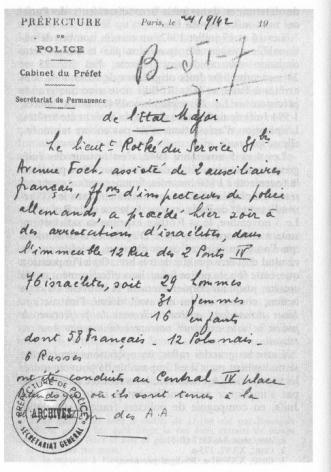 PRÉFECTURE
DE
POLICE
Cabinet du Préfet
Secrétariat de Permanence
Paris, le 24/9/42 19
B-51-7
de l'Etat Major
Le lieut<sup>t</sup> Rotke du Service 31 bis
Avenue Foch, assisté de 2 auxiliaires
français, ff<sup>ons</sup> d'inspecteurs de police
allemands, a procédé hier soir à
des arrestations d'israélites, dans
l'immeuble 12 Rue des 2 Ponts IV
76 israélites, soit 29 hommes
31 femmes
16 enfants
dont 58 Français - 12 Polonais -
6 Russes
ont été conduits au Central IV place
où ils sont tenus à la
des A.A
PREFECTURE DE POLICE
ARCHIVES
SECRETARIAT GENERAL